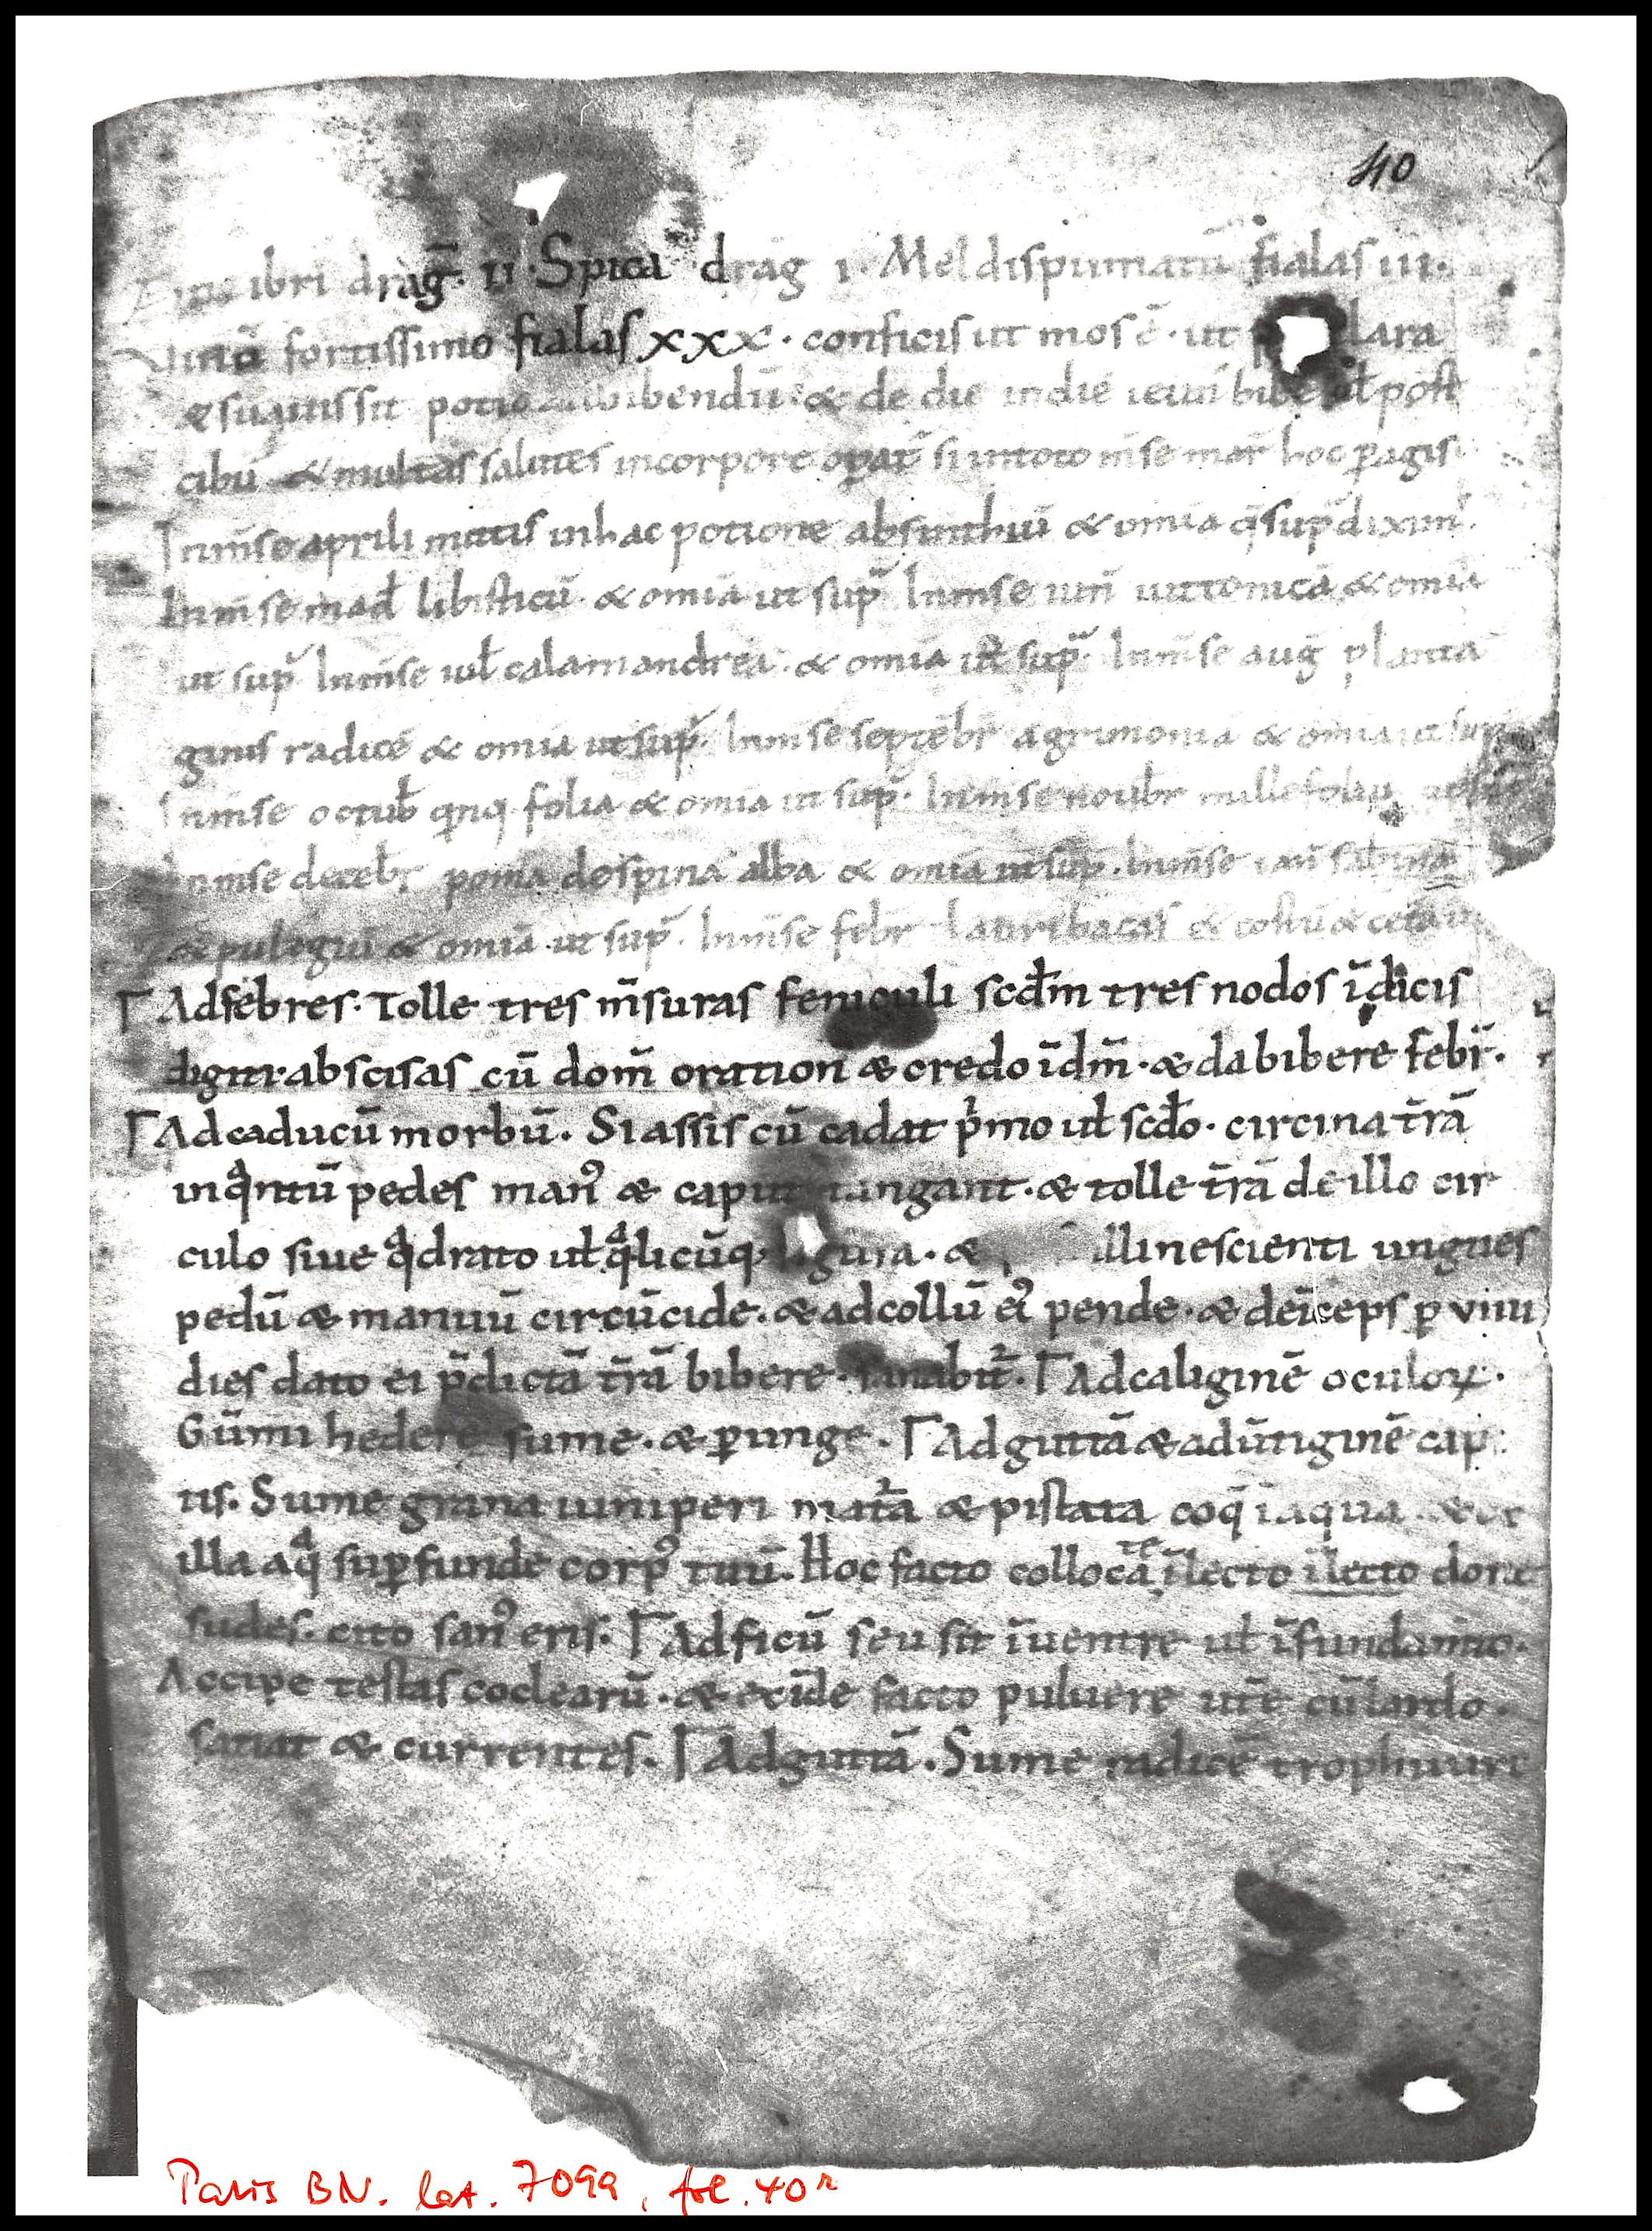 40
ibri drag̅. II · Spica drag I · Mel dispumatū fialas III ·
Vinū fortissimo fialas xxx · conficis ut mos ē · ut lara
& suauis sit potio bibendū & de die in die bibe ul̄ post
cibū & multas salutes in corpore opat̄ si in toto m̄se mar̄ hoc ꝑagis
In m̄se aprili mittis in hac potione absinthiū & omīa q̄ sup̄ diximꝰ.
In m̄se mad̄ libisticū & omīa ut sup̄ In m̄se iun̄ uittonicā & omīa
ut sup̄ In m̄se iul̄ calamandreā · & omīa ut sup̄ · In m̄se auḡ planta
ginis radicē & omīa ut sup̄. In m̄se septēbr̄ agrimonia & omīa ut sup̄
In m̄se octub̄ q̄nq folia & omīa ut sup̄ · In m̄se nouēbr millefoliū ut sup̄
In m̄se decēbr poma de spina alba & omīa ut sup̄ · In m̄se ian̄ sabina
& pulegiū & omīa ut sup̄. In m̄se febr̄ lauri bacas & costū & cetā
Γ Ad febres. Tolle tres m̄suras feniculi scd̄m tres nodos īdicis
digiti abscisas cū dom̄ oration & credo īdm̄ · & da bibere febr̄.
Γ Ad caducū morbū. Si assis cū cadat p̄mo ul̄ scd̄o · circina tr̄ā
in qͣntū pedes manꝰ & caput tangant · & tolle tr̄ā de illo cir
culo siue qͣdrato ul̄ qͣlicūq figura · & illi nescienti ungues
pedū & manuū circūcide · & ad collū eiꝰ pende · & deīceps ꝑ VIIII
dies dato ei p̄dictā tr̄ā bibere · sanabit̄. Γ Ad caliginē oculoꝝ.
Gūmi hedere sume · & ꝑunge. Γ Ad guttā & ad ūtiginē capi
tis. Sume grana iuniperi mat̄a & pistata coq̄ ī aqua
illa aqͣ suꝑfunde corpꝰ tuū. Hoc facto colloca te ī lecto ī lecto donec
sudes. cito sanꝰ eris. Γ Ad ficū seu sit ī uentre ul̄ ī fundam̄to.
Accipe testas coclearū · & exīde facto puluere ut̄e cū lardo.
satiat & currentes. Γ Ad guttā. Sume radicē
Paris BN. lat. 7099, fol. 40r